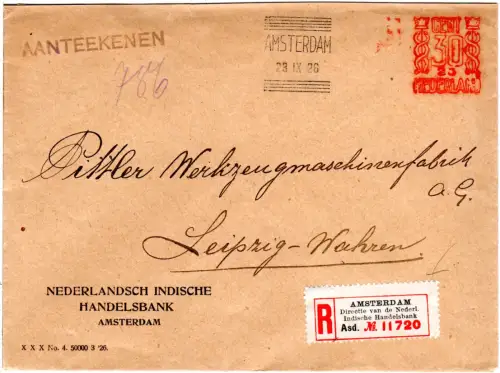 AANTEEKENEN
786
AMSTERDAM
28 IX 26
CENT
30
25
NEDERLAND
Pittler Werkzeugmaschinenfabrik
a.G.
Leipzig-Wahren.
NEDERLANDSCH INDISCHE
HANDELSBANK
AMSTERDAM
X X X No. 4. 50000 3 '26.
R
AMSTERDAM
Directie van de Nederl.
Indische Handelsbank
Asd. № 11720